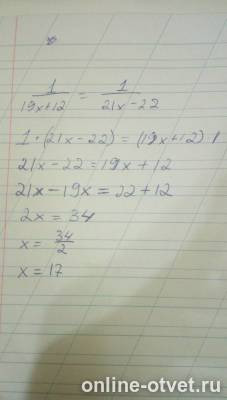 1/(19x+12) = 1/(21x-22)
1·(21x-22)=(19x+12)·1
21x-22=19x+12
21x-19x=22+12
2x=34
x=34/2
x=17
online-otvet.ru